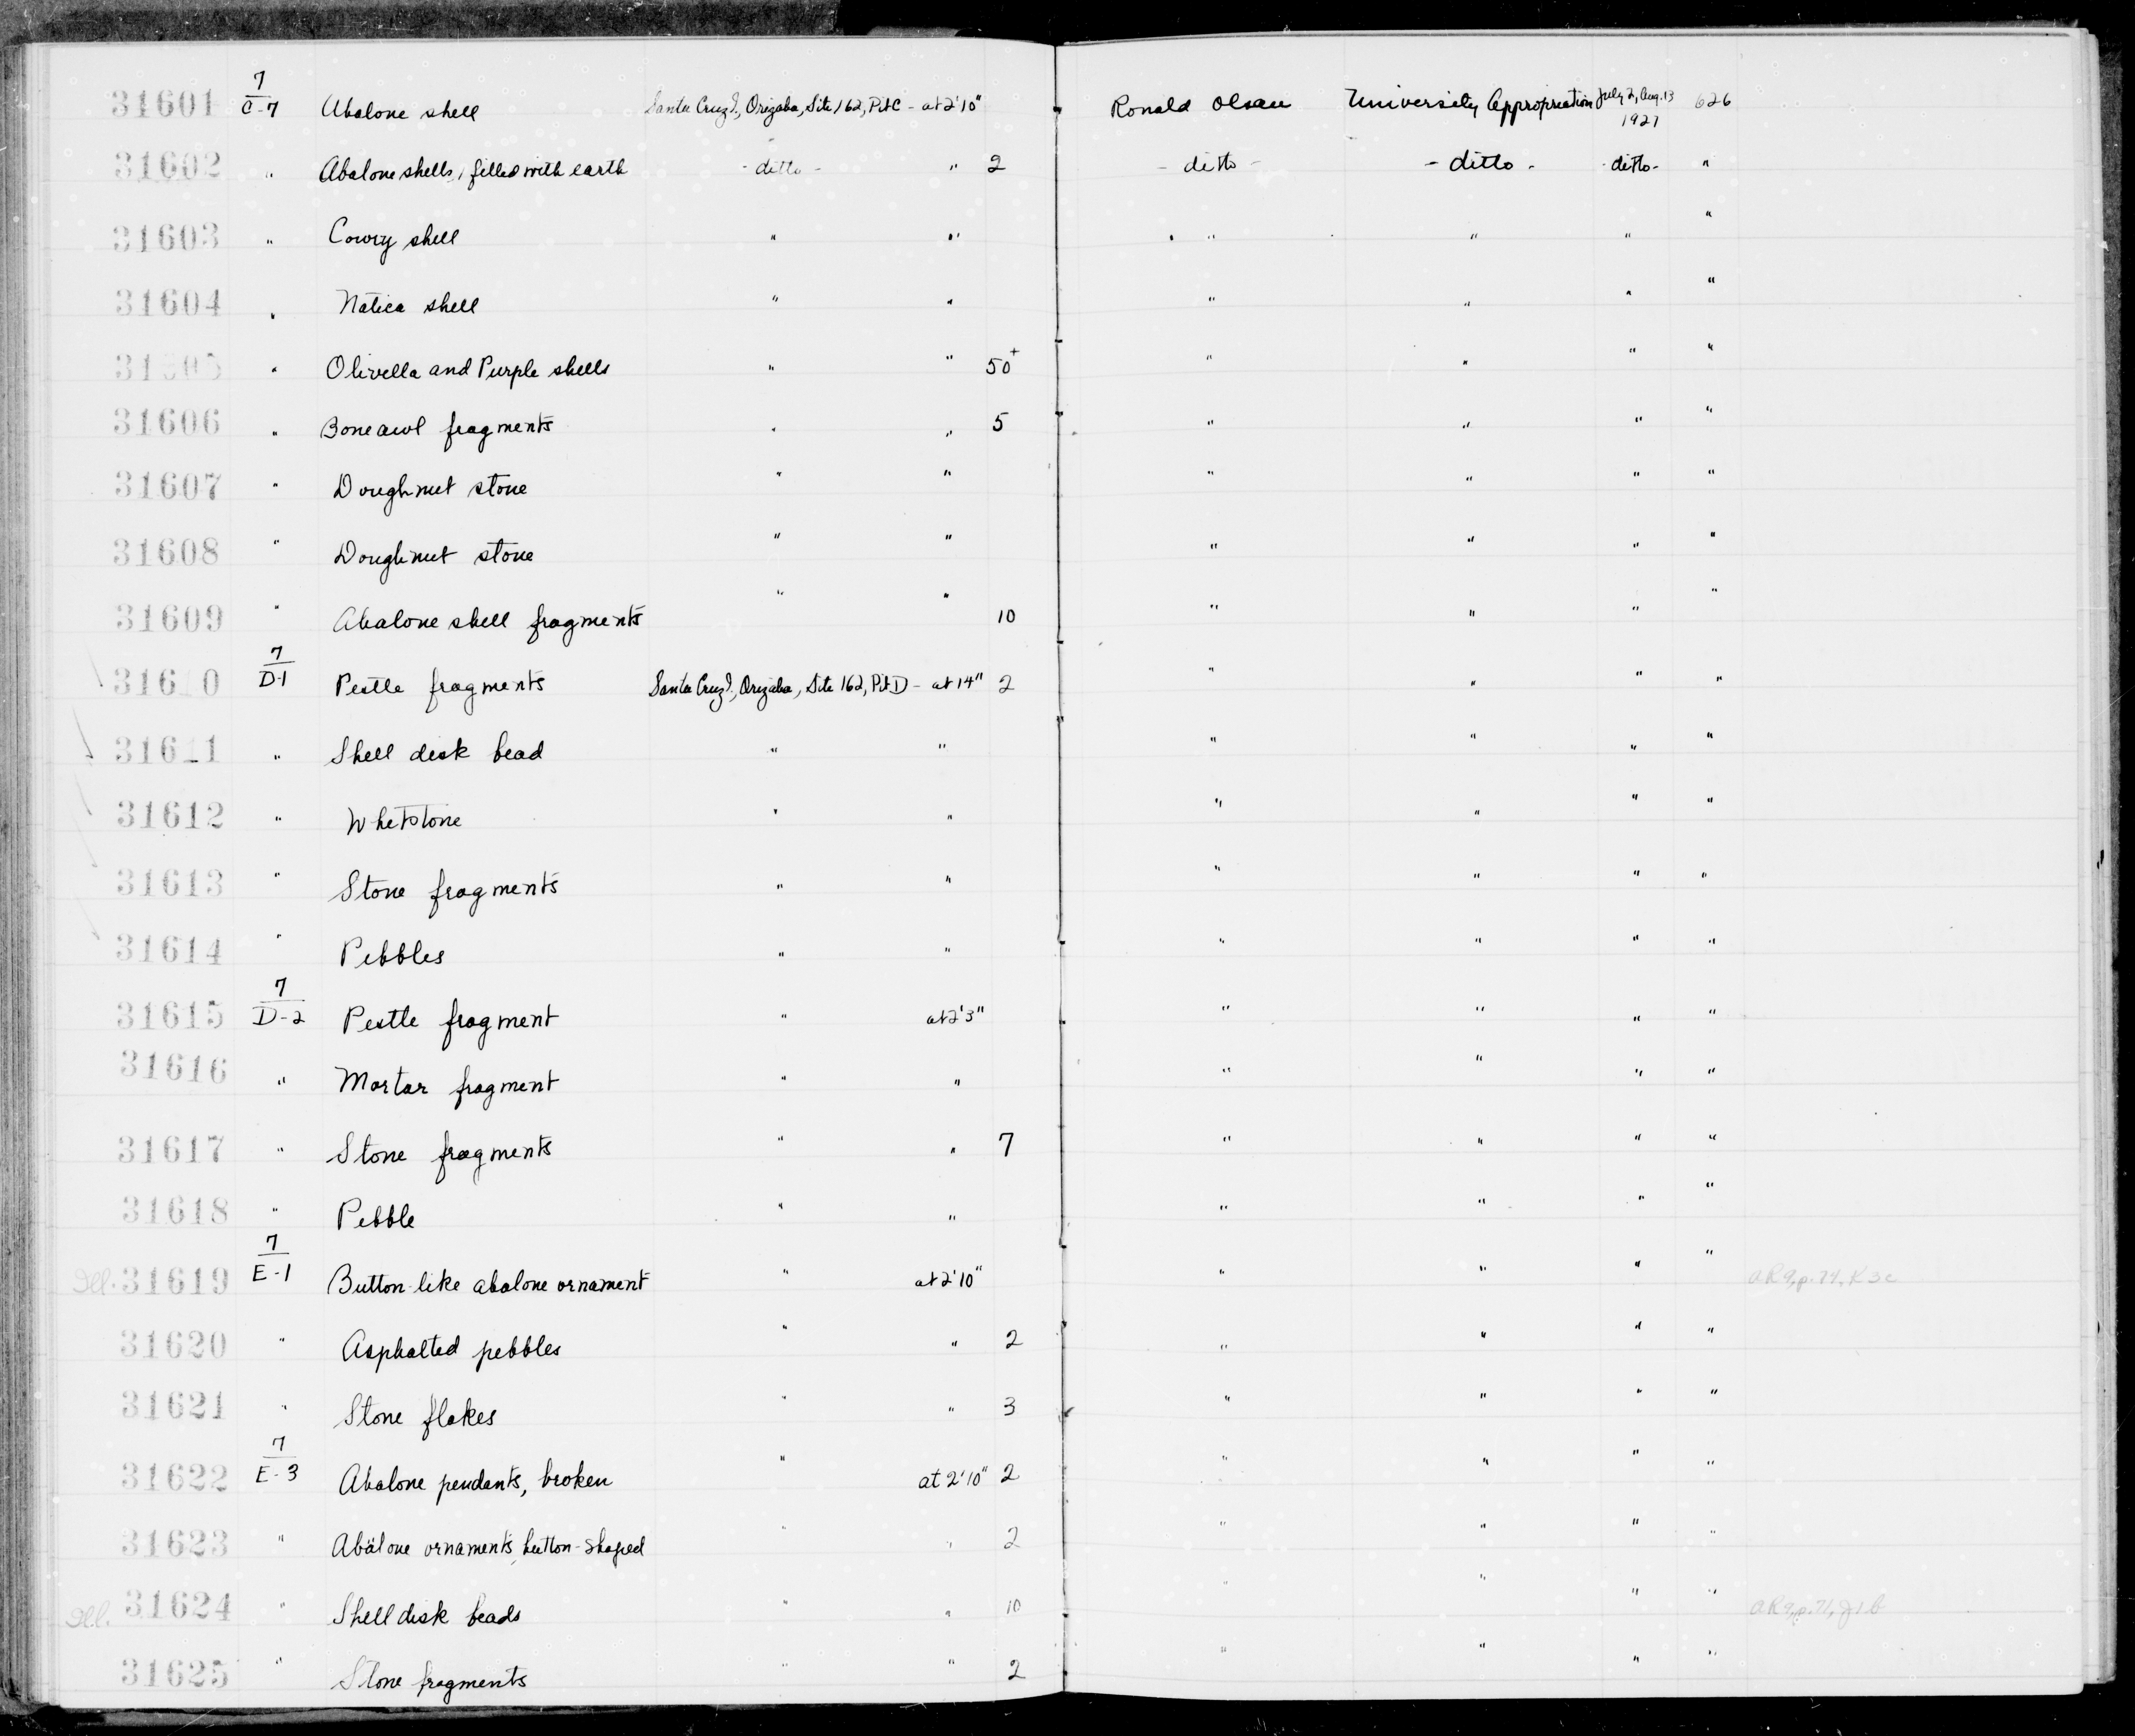 31601 7/C-7 Abalone shell Santa Cruz I., Orizaba, Site 162, Pit C - at 2'10" Ronald Olson University Appropriation July 2, Aug. 13 1927 626
31602 " Abalone shells, filled with earth - ditto - " 2 - ditto - - ditto - - ditto - "
31603 " Cowry shell " " " " " "
31604 " Natica shell " " " " " "
31605 " Olivella and Purple shells " " 50+ " " " "
31606 " Bone awl fragments " " 5 " " " "
31607 " Doughnut stone " " " " " "
31608 " Doughnut stone " " " " " "
31609 " Abalone shell fragments " " 10 " " " "
31610 7/D-1 Pestle fragments Santa Cruz I., Orizaba, Site 162, Pit D - at 14" 2 " " " "
31611 " Shell disk bead " " " " " "
31612 " Whetstone " " " " " "
31613 " Stone fragments " " " " " "
31614 " Pebbles " " " " " "
31615 7/D-2 Pestle fragment " at 2'3" " " " "
31616 " Mortar fragment " " " " " "
31617 " Stone fragments " " 7 " " " "
31618 " Pebble " " " " " "
Ill. 31619 7/E-1 Button-like abalone ornament " at 2'10" " " " " AR9, p. 74, K3c
31620 " Asphalted pebbles " " 2 " " " "
31621 " Stone flakes " " 3 " " " "
31622 7/E-3 Abalone pendants, broken " at 2'10" 2 " " " "
31623 " Abalone ornaments, button-shaped " " 2 " " " "
Ill. 31624 " Shell disk beads " " 10 " " " " AR9, p. 71, J1b
31625 " Stone fragments " " 2 " " " "